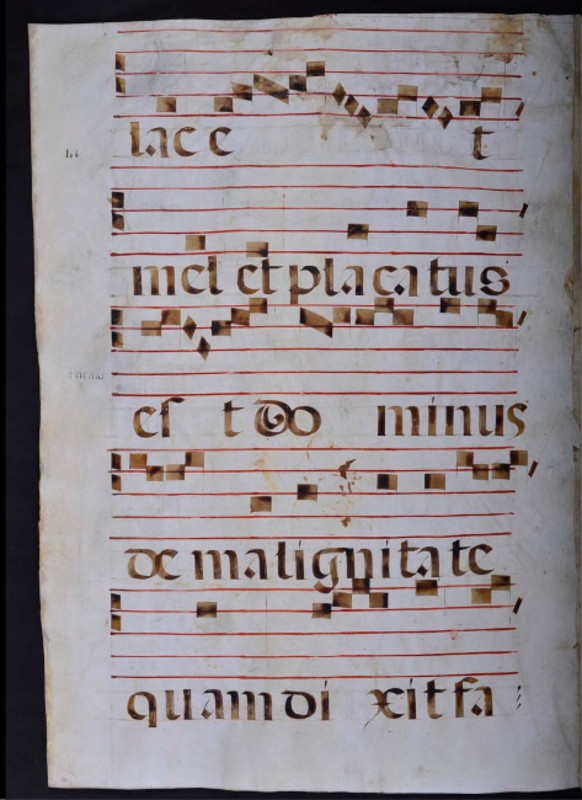 lac e t
mel et placatus
est t do minus
de malignitate
quam di xit fa